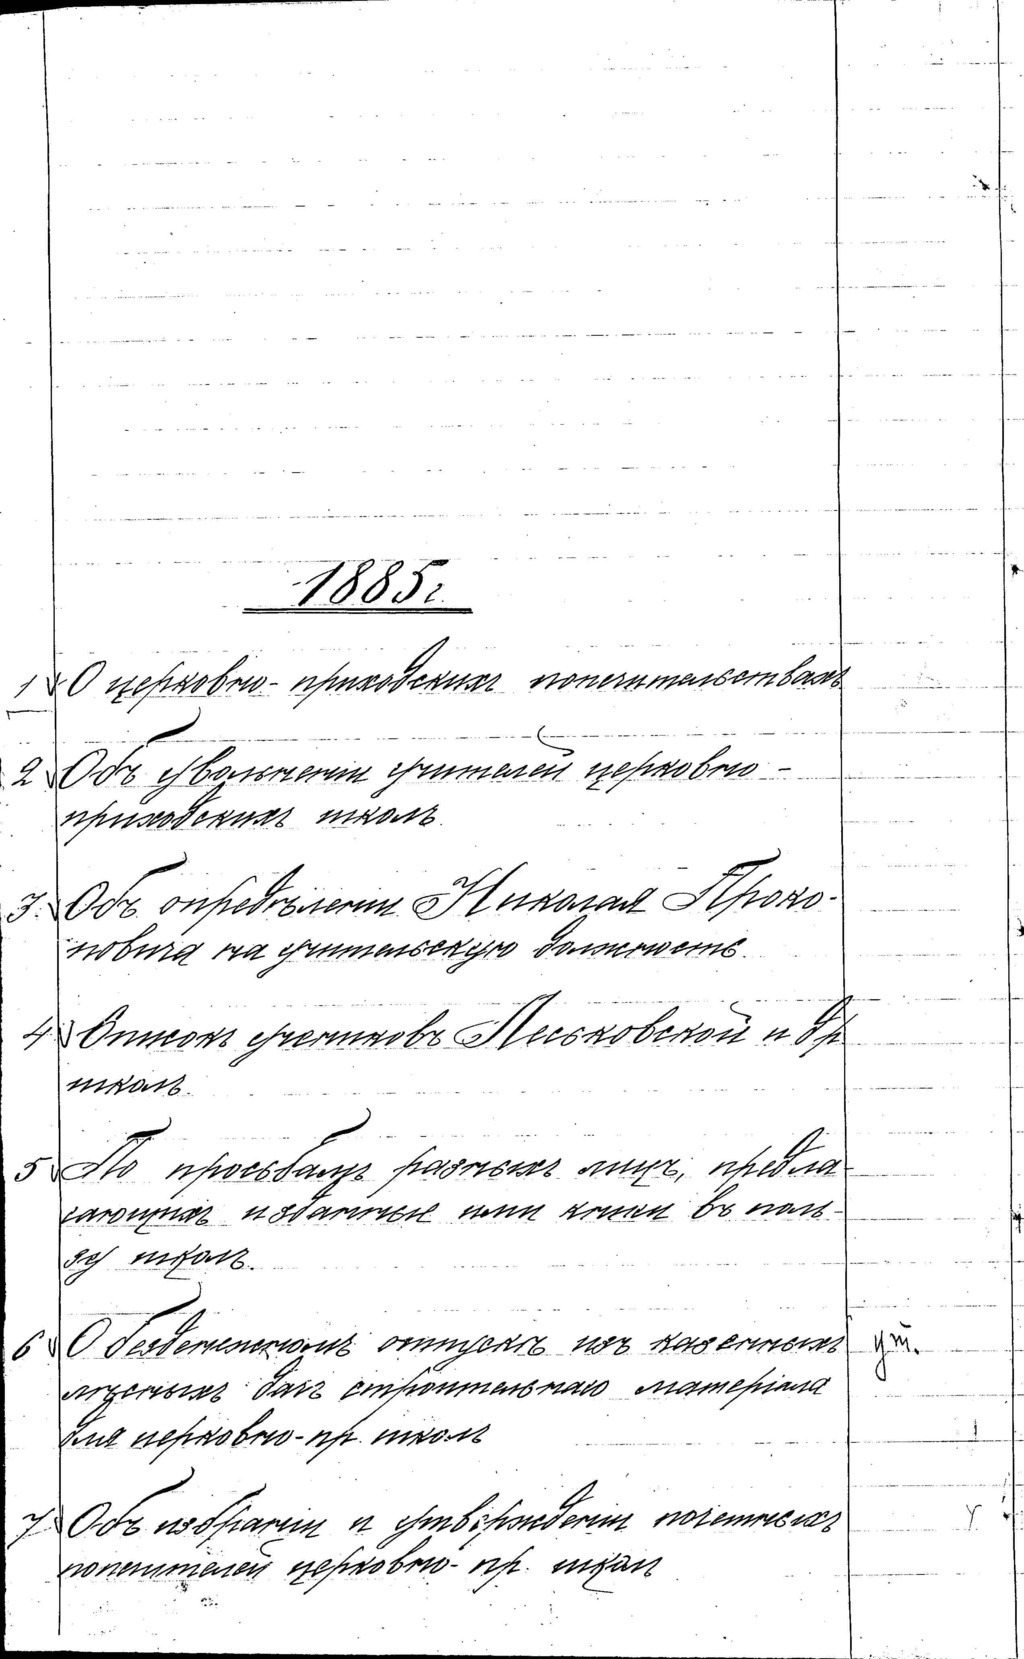 1885г.
1 О церковно-приходскихъ попечительствахъ
2 Объ увольнении учителей церковно-
приходскихъ школъ.
3. Объ определении Николая Проко-
повича на учительскую должность.
4 Список учениковъ Леськовской и др
школъ.
5 По просьбамъ разныхъ лицъ, предла
гающихъ изданныя ими книги въ поль-
зу школъ.
6 О безденежномъ отпуске изъ казенныхъ ут.
лесныхъ дачъ строительнаго матеріала
для церковно-пр. школъ
7 Объ избраніи и утвержденіи почетныхъ
попечителей церковно-пр. школ